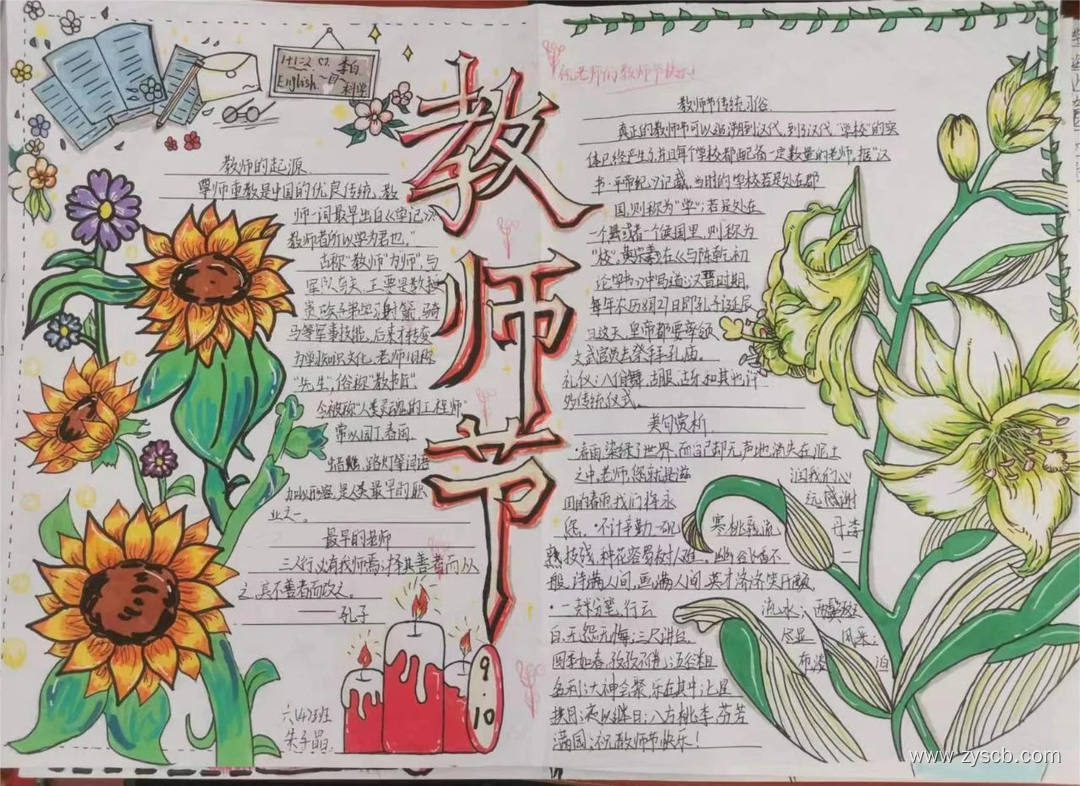 1+1=2 李白
English 科学
教师节
教师的起源
尊师重教是中国的优良传统,教
师一词最早出自《学记》
教师者所以学为君也。"
古称"教师"为师",与
军队有关,主要是教授
贵族子弟 射箭、骑
马等军事技能,后来才转变
为学知识文化,老师旧称
"先生",俗称"教书匠"
今被称"人类灵魂的工程师"
常以园丁、春雨、
蜡烛、路灯等词语
加以形容,是人类最早的职
业之一。
最早的老师
三人行必有我师焉,择其善者而从
之,其不善者而改之。
——孔子
9.10
祝老师们教师节快乐!
教师节传统习俗
真正的教师节可以追溯到汉代,到了汉代"学校"的实
体已经产生了,并且每个学校都配备一定数量的老师,据"汉
书·平帝纪"记载,当时的学校若是处在郡
国,则称为"学";若是处在
一个县或者一个侯国里,则称为
"校",黄 在《与陈乾初
论学书》中写道:汉晋时期,
每年农历8月27日即孔子诞辰
日这天,皇帝都要率领
文武官员去祭拜孔庙。
礼仪:八佾舞、古服、古乐和其他许
多传统仪式。
美句赏析
·春雨,染绿了世界,而自己却无声地消失在泥土
之中,老师,您就是滋 润我们心
田的春雨,我们将永 远感谢
您。·不计辛勤一砚 寒,桃熟流 丹李
熟枝残,种花容易树人难。幽谷飞香不 一
般,诗满人间,画满人间,英才济济笑开颜。
·一支粉笔,行云 流水;两鬓斑
白,无怨无悔;三尺讲台, 尽显 风采;
四季如春,孜孜不倦;五谷 布 泊
名利;大神会聚,乐在其中;七星
换月,夜以继日;八方桃李,芬芳
满园;祝教师节快乐!
www.zyscb.com